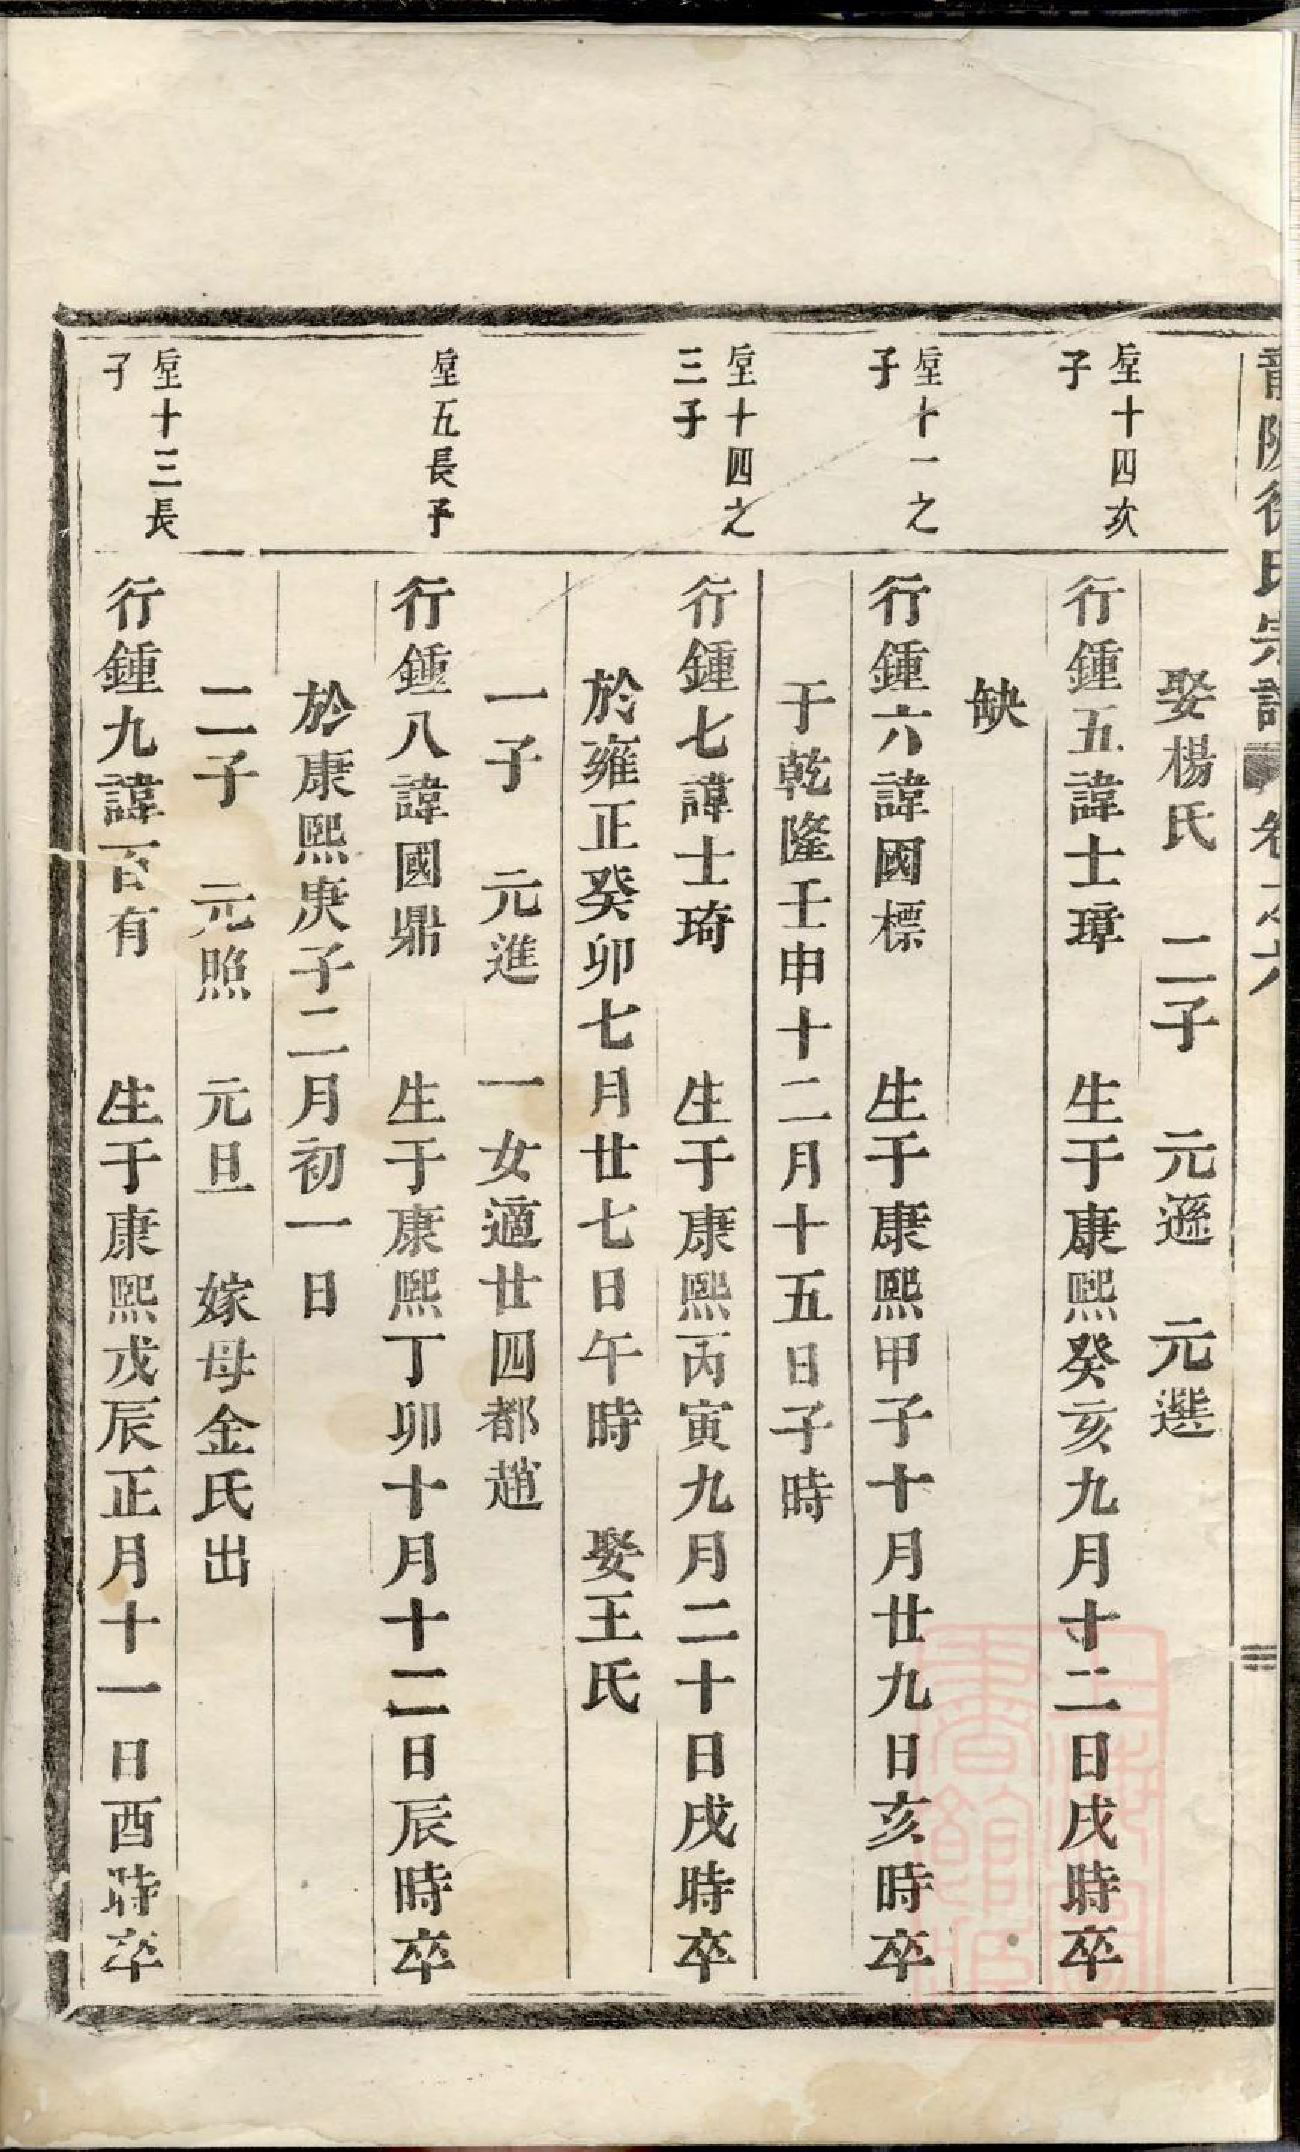 徐氏宗譜 卷之六
娶楊氏 二子 元遜 元選
堂十四次子
行鍾五諱士璋 生于康熙癸亥九月十二日戌時卒
缺
堂十一之子
行鍾六諱國標 生于康熙甲子十月廿九日亥時卒
于乾隆壬申十二月十五日子時
堂十四之三子
行鍾七諱士琦 生于康熙丙寅九月二十日戌時卒
於雍正癸卯七月廿七日午時 娶王氏
一子 元進 一女適廿四都趙
堂五長子
行鍾八諱國鼎 生于康熙丁卯十月十二日辰時卒
於康熙庚子二月初一日
二子 元照 元旦 嫁母金氏出
堂十三長子
行鍾九諱百有 生于康熙戊辰正月十一日酉時卒